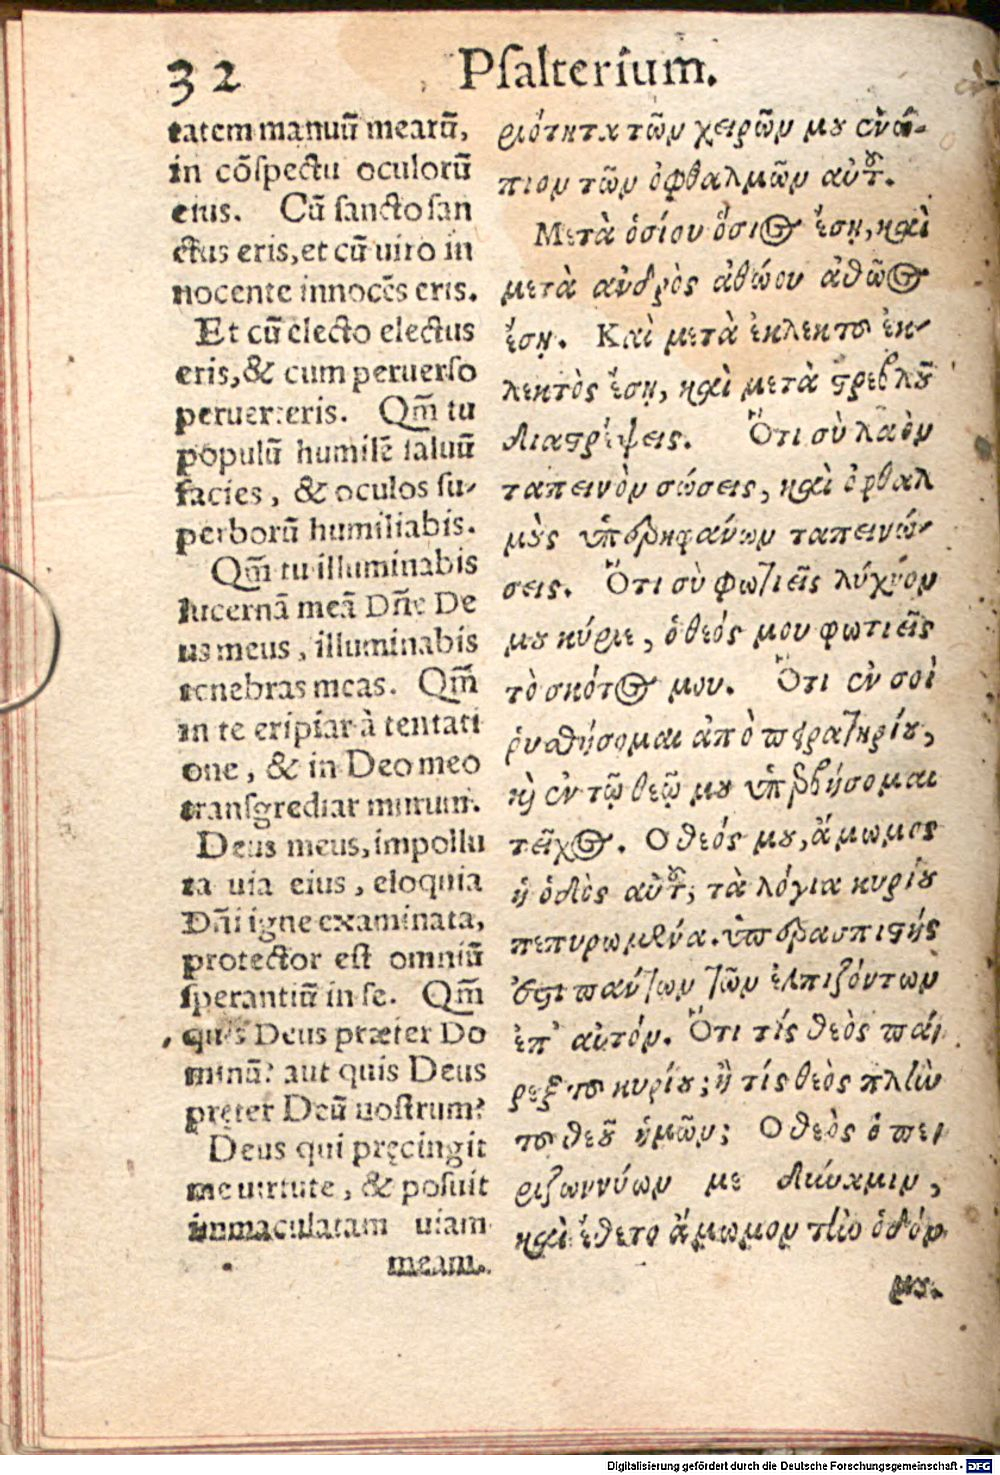 32 Psalterium.
tatem manuū mearū,
in cōspectu oculorū
eius. Cū sancto san
ctus eris, et cū uiro in
nocente innocēs eris.
Et cū electo electus
eris, & cum peruerso
peruerteris. Qm̄ tu
populū humilē saluū
facies, & oculos su-
perborū humiliabis.
Qm̄ tu illuminabis
lucernā meā Dn̄e De
us meus, illuminabis
tenebras meas. Qm̄
in te eripiar à tentati
one, & in Deo meo
transgrediar murum.
Deus meus, impollu
ta uia eius, eloquia
Dn̄i igne examinata,
protector est omniū
sperantiū in se. Qm̄
quis Deus præter Do
minū? aut quis Deus
pręter Deū nostrum?
Deus qui pręcingit
me uirtute, & posuit
immaculatam uiam
meam.
ριότητα τῶν χειρῶν μου ἐνώ-
πιον τῶν ὀφθαλμῶν αὐτοῦ.
Μετὰ ὁσίου ὅσιος ἔσῃ, καὶ
μετὰ ἀνδρὸς ἀθώου ἀθῶος
ἔσῃ. Καὶ μετὰ ἐκλεκτοῦ ἐκ-
λεκτὸς ἔσῃ, καὶ μετὰ στρεβλοῦ
διαστρέψεις. Ὅτι σὺ λαὸν
ταπεινὸν σώσεις, καὶ ὀφθαλ
μοὺς ὑπερηφάνων ταπεινώ-
σεις. Ὅτι σὺ φωτιεῖς λύχνον
μου κύριε, ὁ θεός μου φωτιεῖς
τὸ σκότος μου. Ὅτι ἐν σοὶ
ῥυσθήσομαι ἀπὸ πειρατηρίου,
καὶ ἐν τῷ θεῷ μου ὑπερβήσομαι
τεῖχος. Ὁ θεός μου, ἄμωμος
ἡ ὁδὸς αὐτοῦ, τὰ λόγια κυρίου
πεπυρωμένα. ὑπερασπιστής
ἐστι πάντων τῶν ἐλπιζόντων
ἐπ' αὐτόν. Ὅτι τίς θεὸς πά
ρεξ τοῦ κυρίου; ἢ τίς θεὸς πλὴν
τοῦ θεοῦ ἡμῶν; Ὁ θεὸς ὁ πε
ριζωννύων με δύναμιν,
καὶ ἔθετο ἄμωμον τὴν ὁδόν
μου.
Digitalisierung gefördert durch die Deutsche Forschungsgemeinschaft - DFG